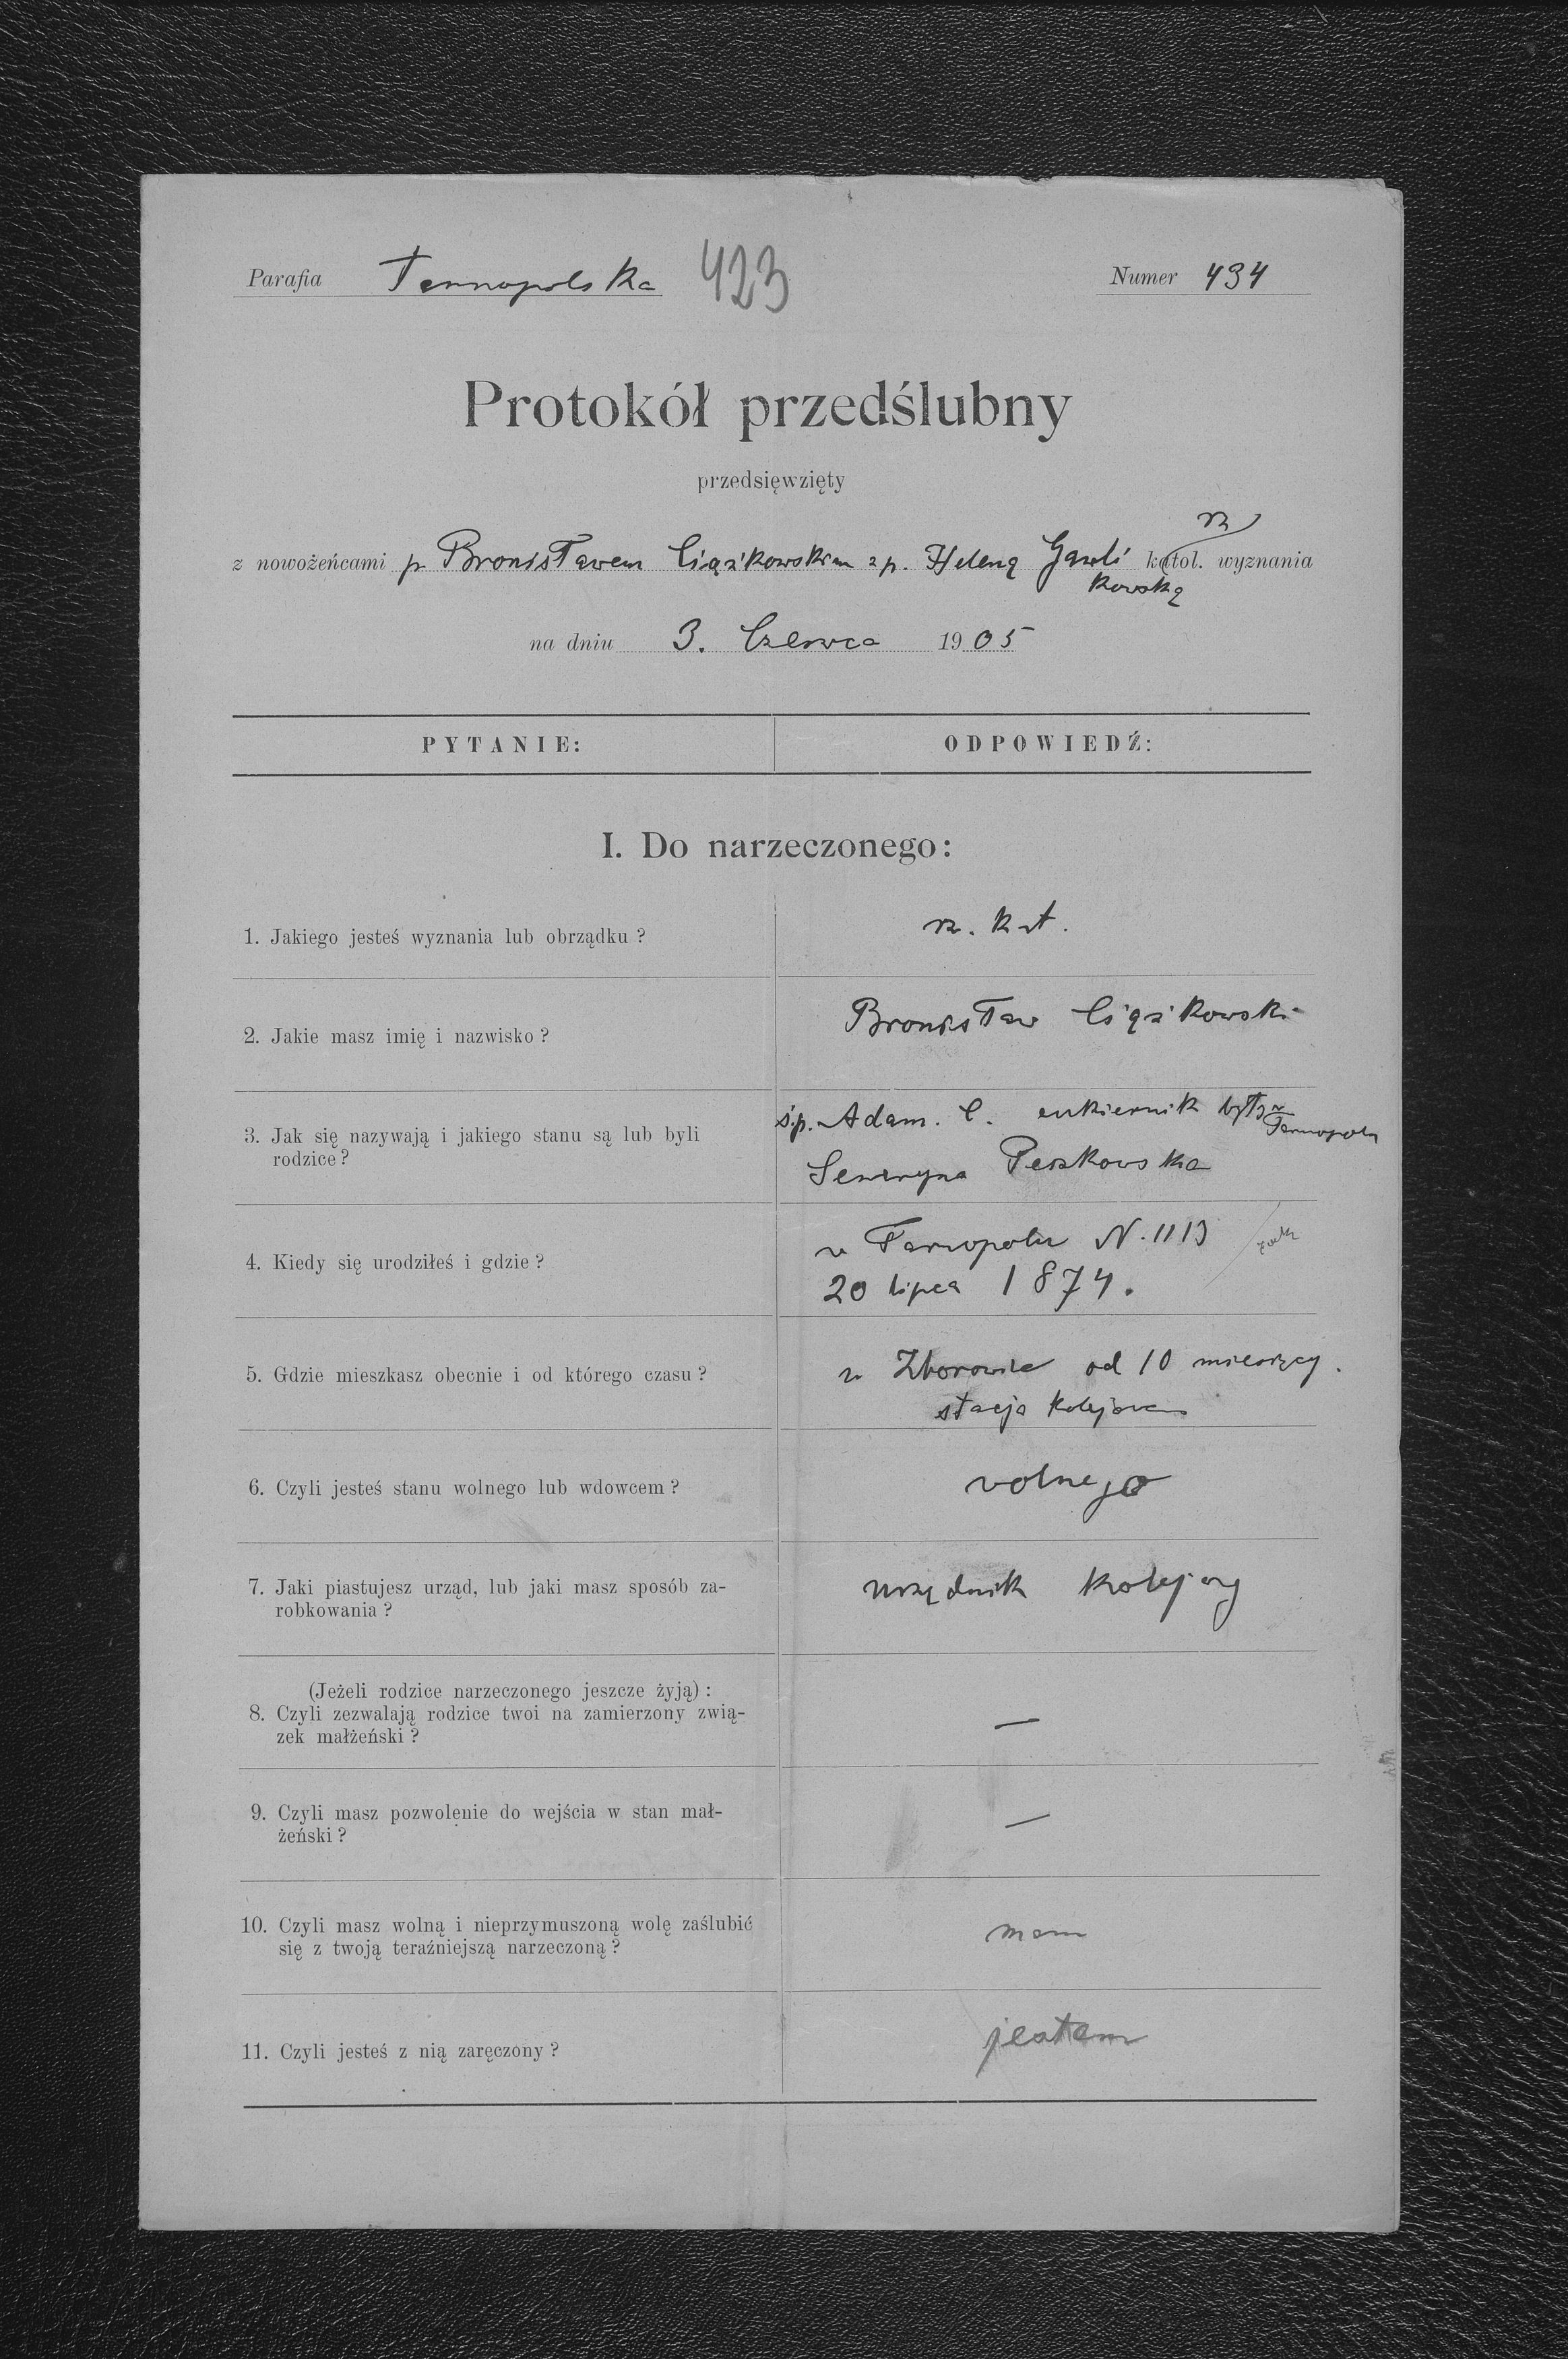 Parafia Tarnopolska 423 Numer 434
Protokół przedślubny
przedsięwzięty
z nowożeńcami p Bronisławem Ciążkowskim z p. Heleną Gawli katol. wyznania
kowską
na dniu 3. Czerwca 1905
PYTANIE: ODPOWIEDŹ:
I. Do narzeczonego:
1. Jakiego jesteś wyznania lub obrządku? rz. kat.
2. Jakie masz imię i nazwisko? Bronisław Ciążkowski
3. Jak się nazywają i jakiego stanu są lub byli
rodzice?
śp. Adam. C. cukiernik były w
Tarnopolu
Seweryna Peszkowska
4. Kiedy się urodziłeś i gdzie?
w Tarnopolu N. 1113
20 lipca 1874.
5. Gdzie mieszkasz obecnie i od którego czasu?
w Zborowie od 10 miesięcy.
stacja kolejowa
6. Czyli jesteś stanu wolnego lub wdowcem? wolnego
7. Jaki piastujesz urząd, lub jaki masz sposób za-
robkowania?
urzędnik kolejowy
(Jeżeli rodzice narzeczonego jeszcze żyją):
8. Czyli zezwalają rodzice twoi na zamierzony zwią-
zek małżeński?
—
9. Czyli masz pozwolenie do wejścia w stan mał-
żeński?
—
10. Czyli masz wolną i nieprzymuszoną wolę zaślubić
się z twoją teraźniejszą narzeczoną?
mam
11. Czyli jesteś z nią zaręczony? jestem